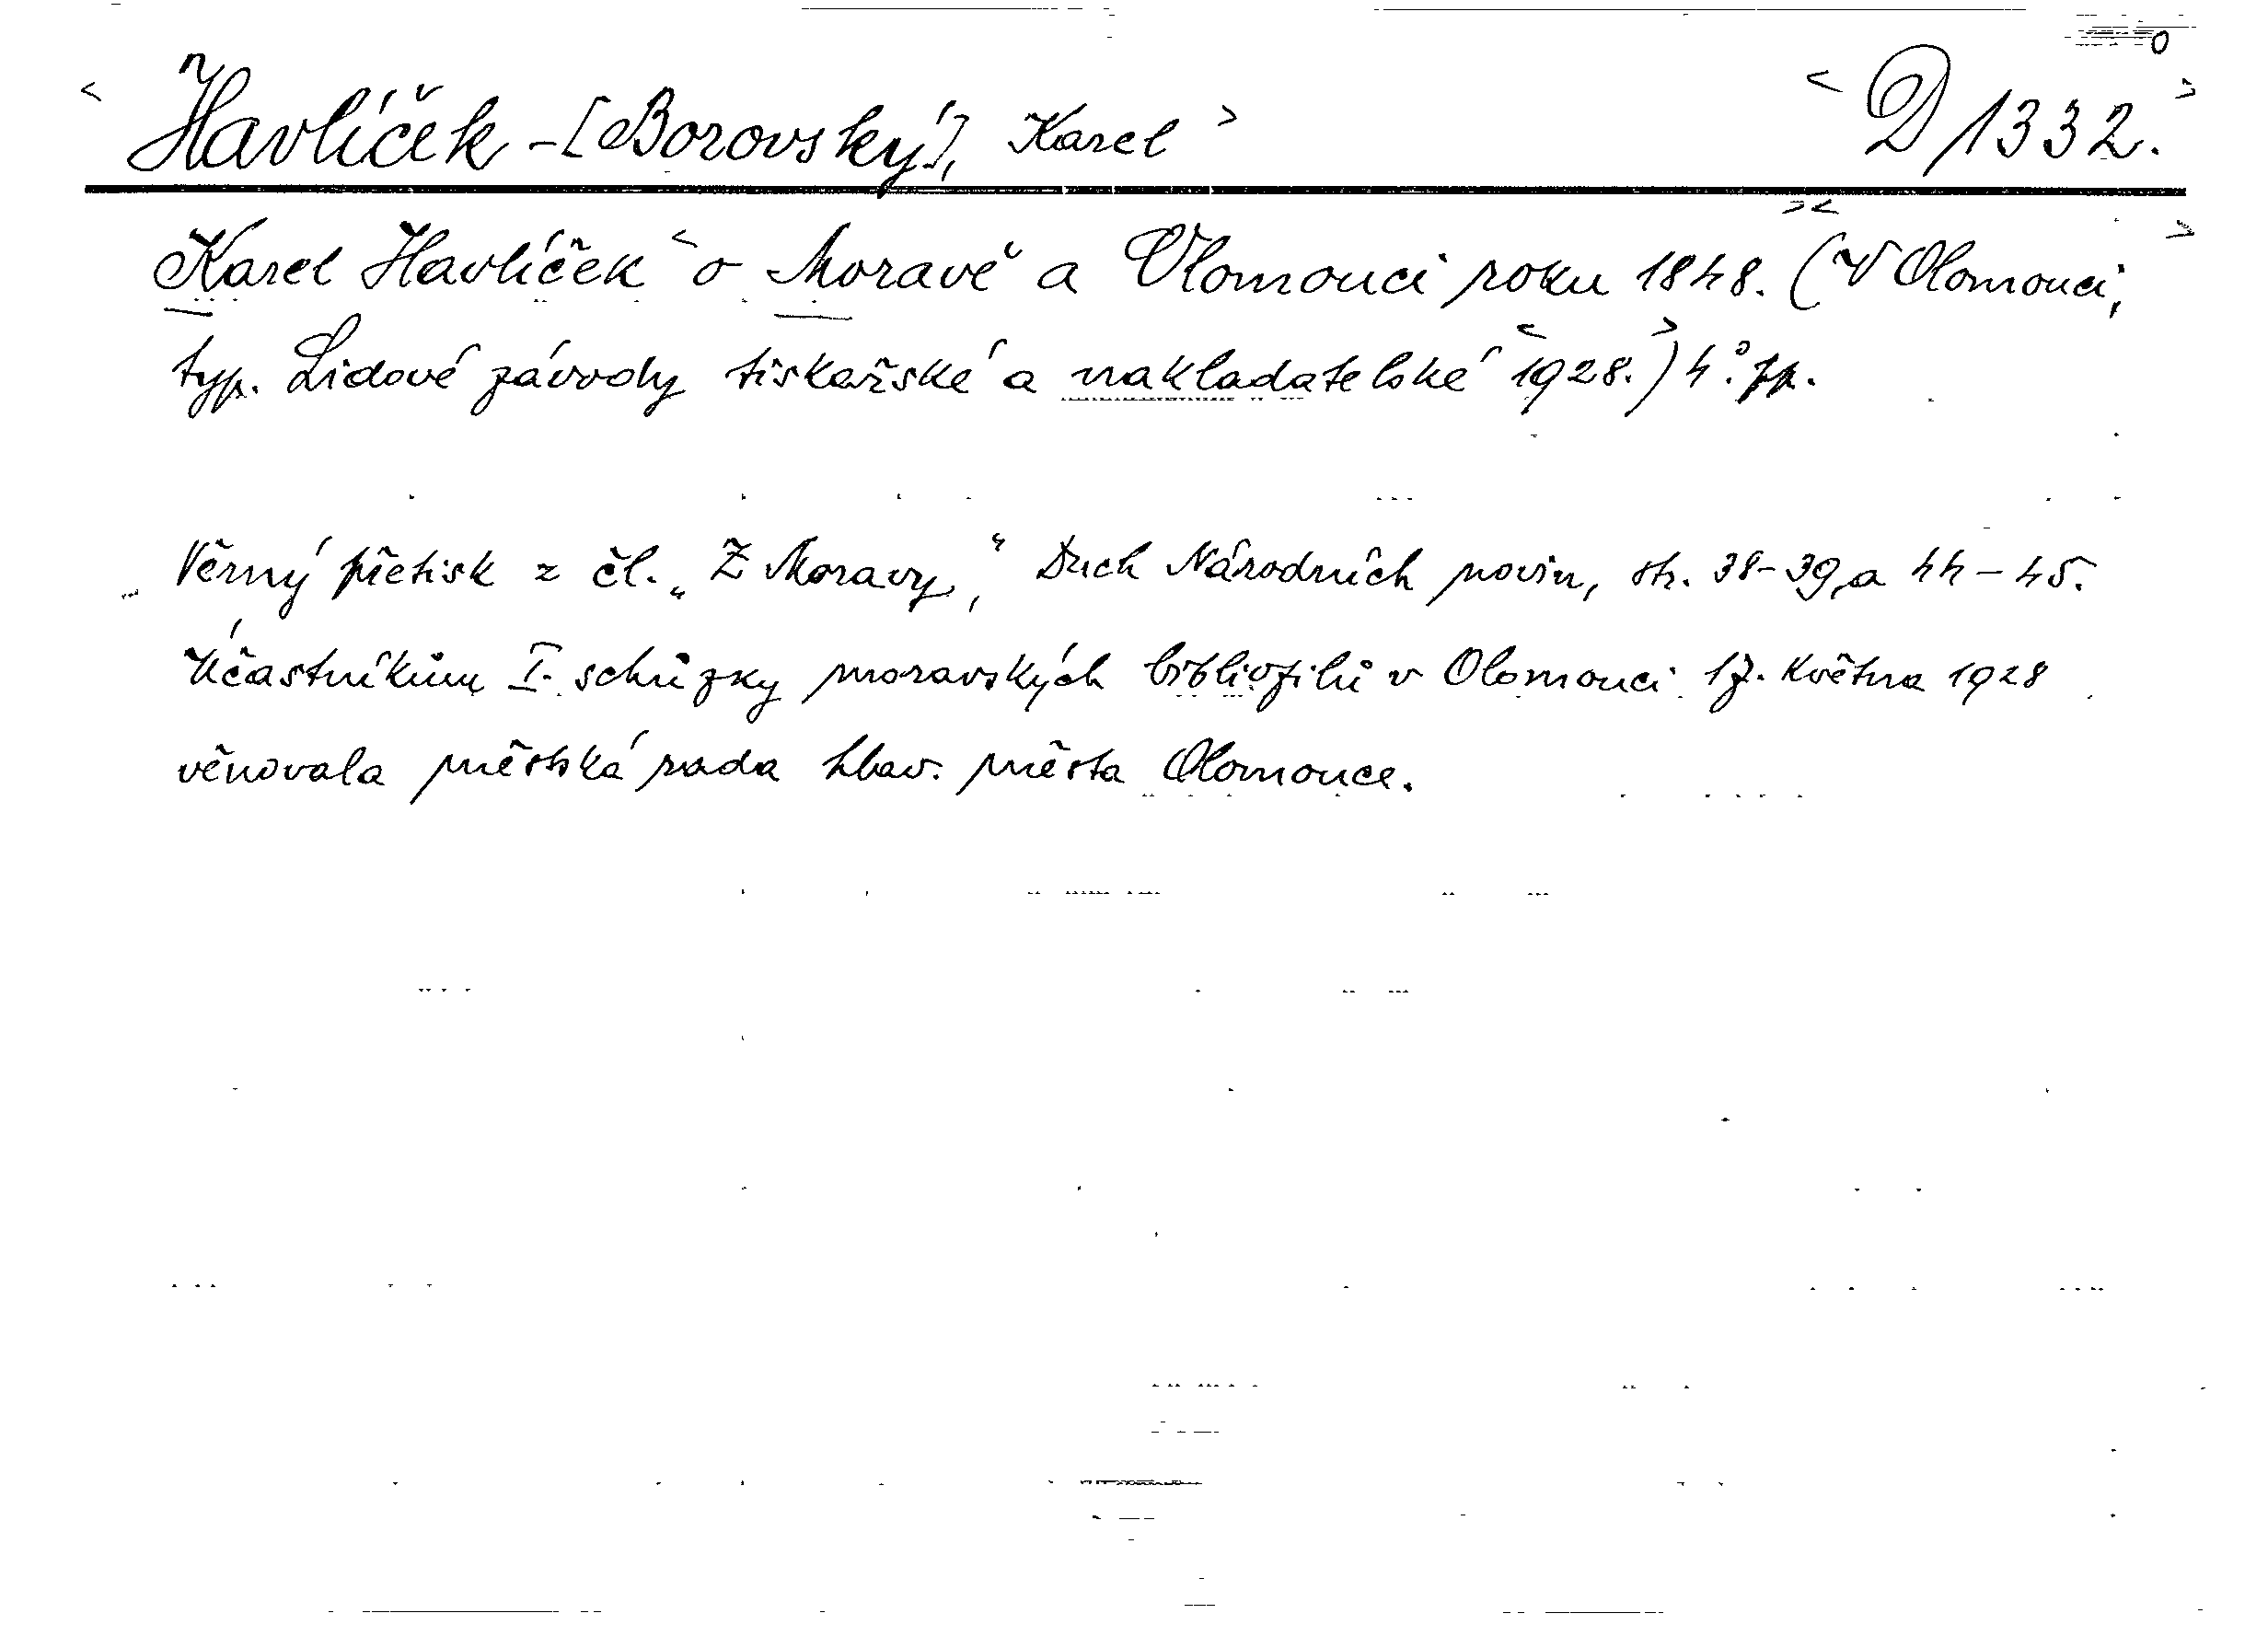 < Havlíček-[Borovský], Karel > < D 1332. >
Karel Havlíček < o Moravě a Olomouci roku 1848. > < (V Olomouci, >
typ. Lidové závody tiskařské a nakladatelské < 1928. > ) 4°.
Věrný přetisk z čl. „Z Moravy,“ Duch Národních novin, str. 38-39, a 44-45.
Účastníkům I. schůzky moravských bibliofilů v Olomouci 17. května 1928
věnovala městská rada hlav. města Olomouce.